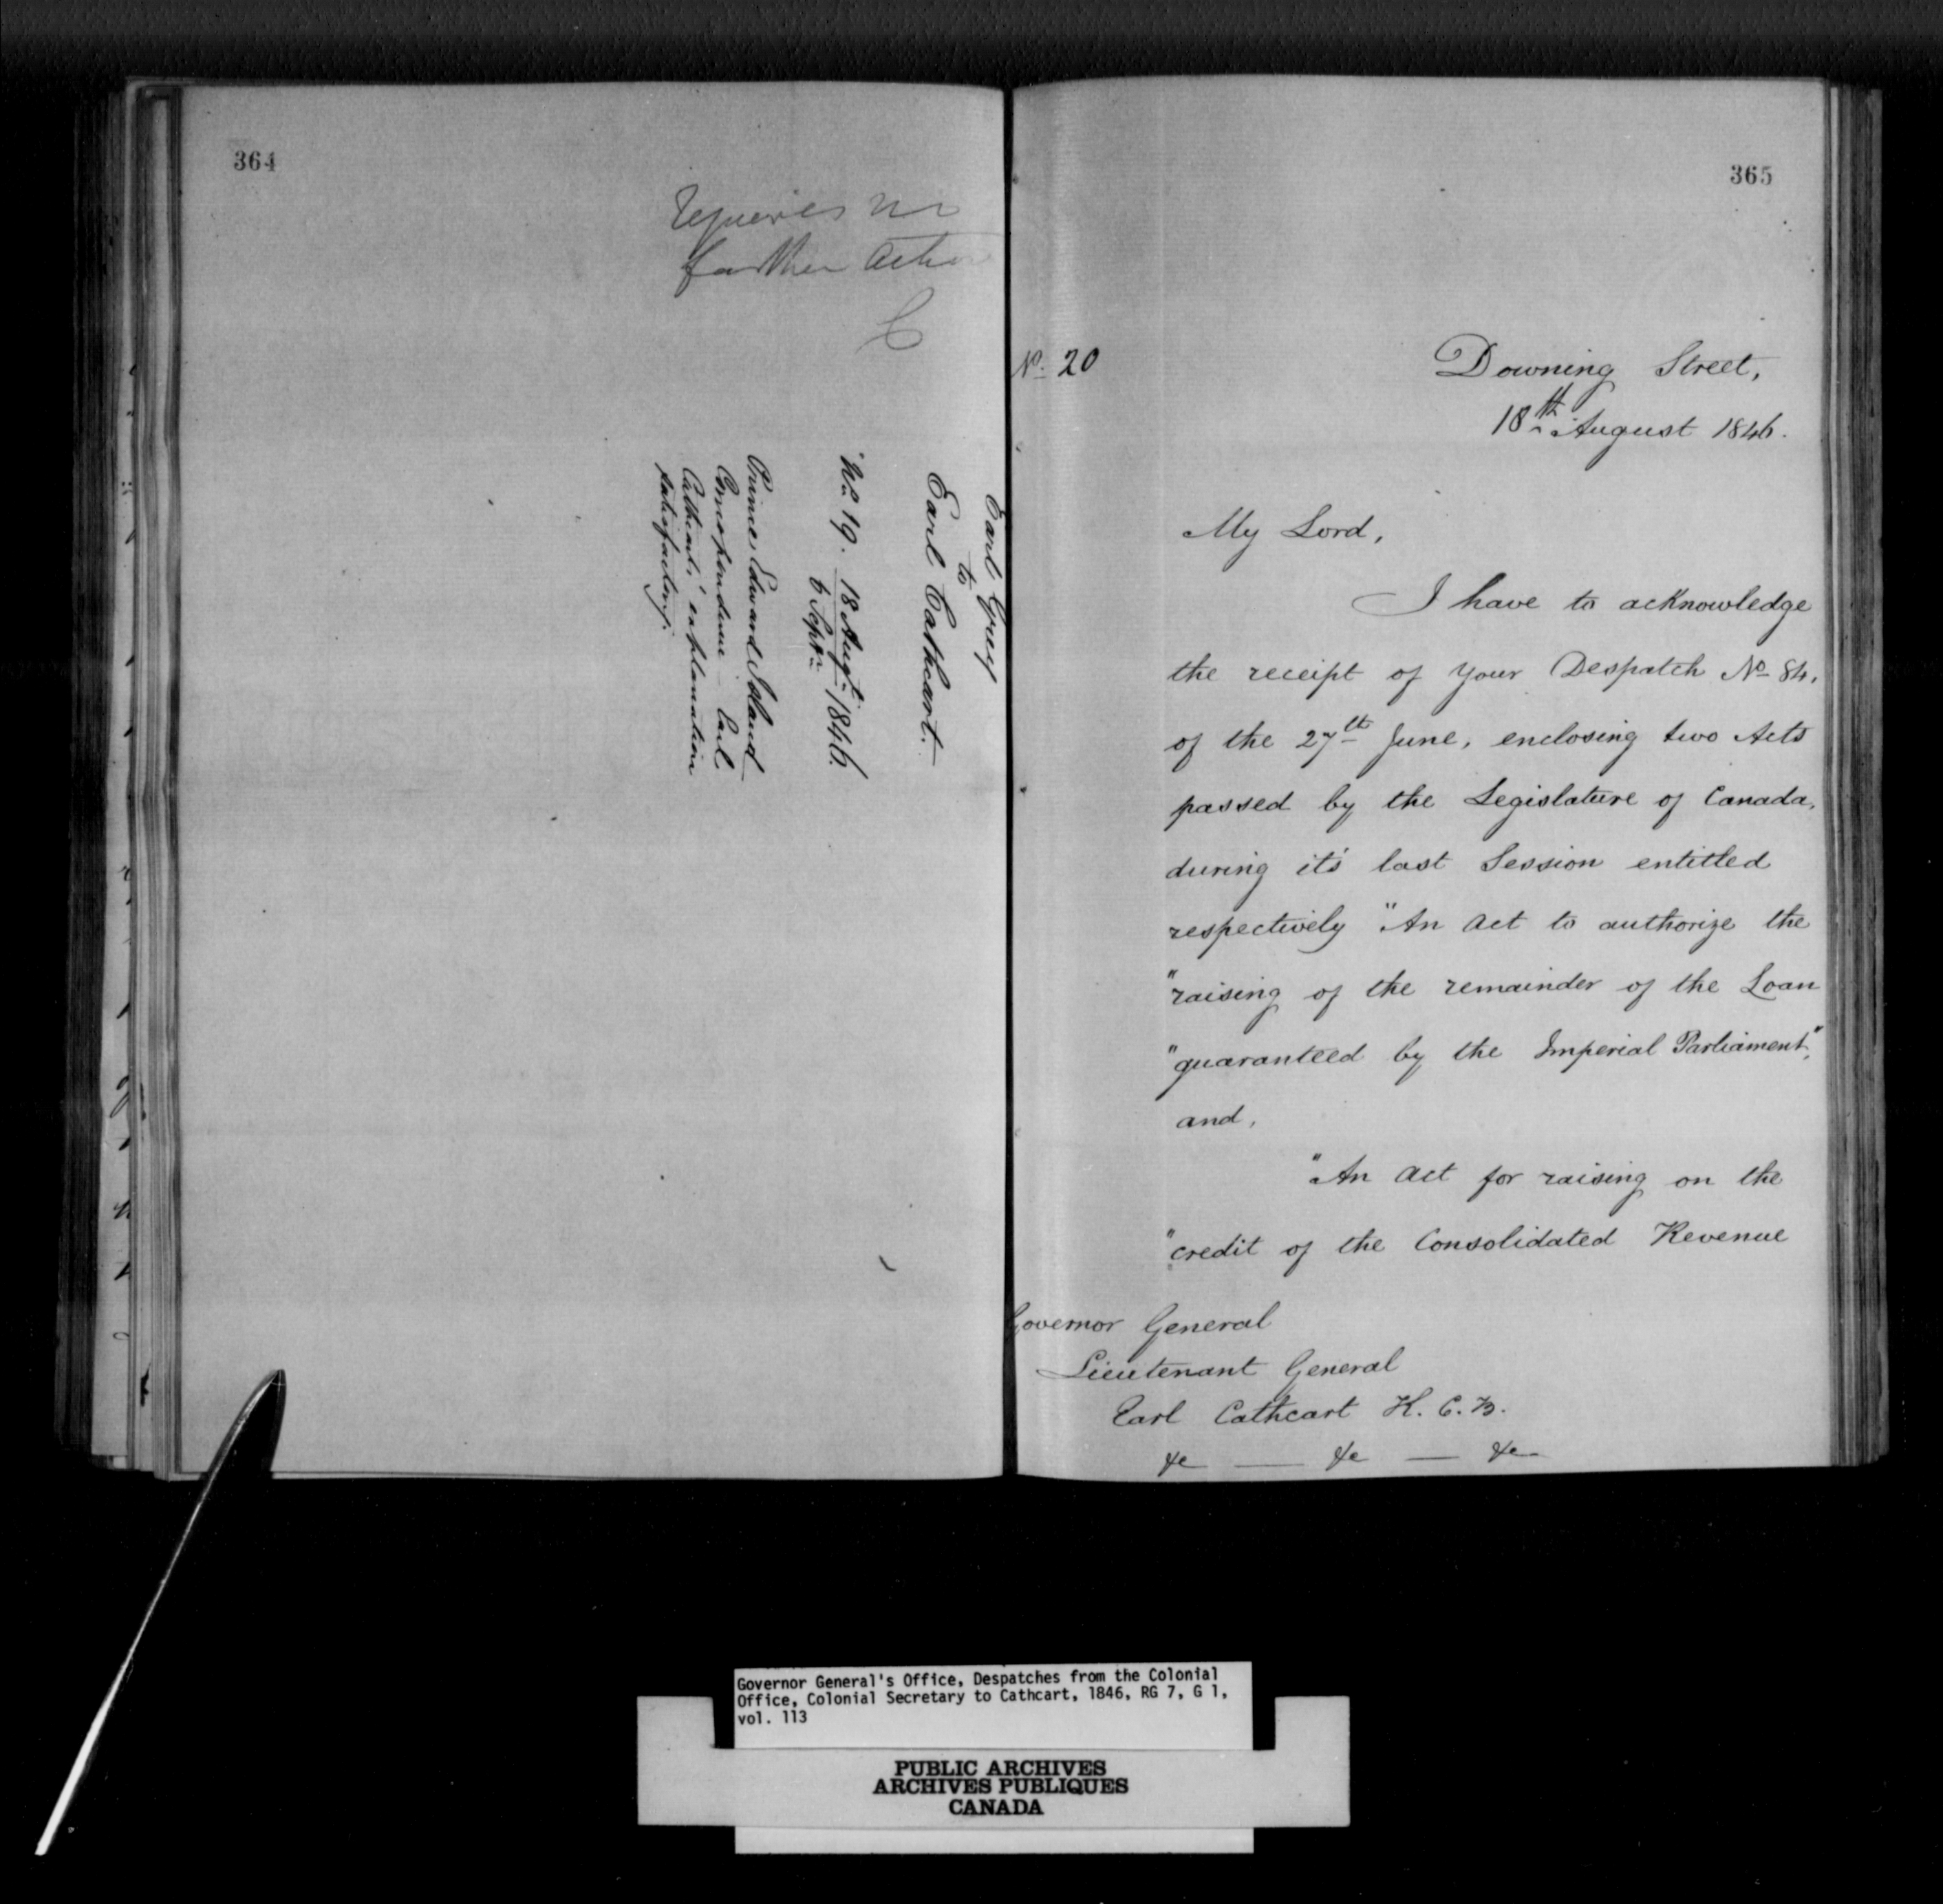 364
Requires no
further action
C
Earl Grey
to
Earl Cathcart.
No 19. 18 Augt. 1846.
6 Septr.
Prince Edward Island
Correspondence – Earl
Cathcart's explanation
satisfactory.
365
No. 20
Downing Street,
18th August 1846.
My Lord,
I have to acknowledge
the receipt of your Despatch No 84,
of the 27th June, enclosing two Acts
passed by the Legislature of Canada,
during it's last Session entitled
respectively "An Act to authorize the
"raising of the remainder of the Loan
"guaranteed by the Imperial Parliament",
and,
"An Act for raising on the
"credit of the Consolidated Revenue
Governor General
Lieutenant General
Earl Cathcart K.C.B.
&c — &c — &c
Governor General's Office, Despatches from the Colonial
Office, Colonial Secretary to Cathcart, 1846, RG 7, G 1,
vol. 113
PUBLIC ARCHIVES
ARCHIVES PUBLIQUES
CANADA